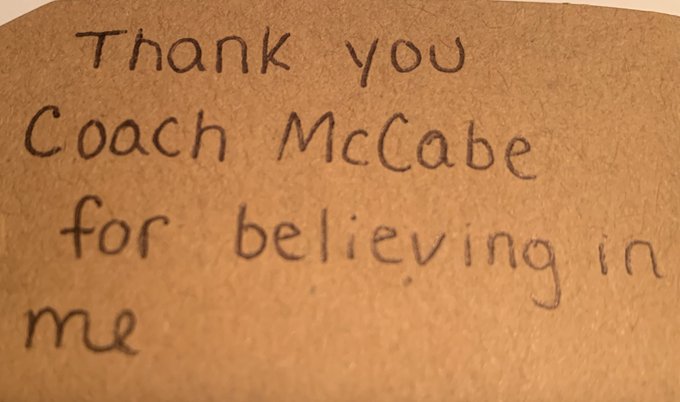 Thank you
Coach McCabe
for believing in
me